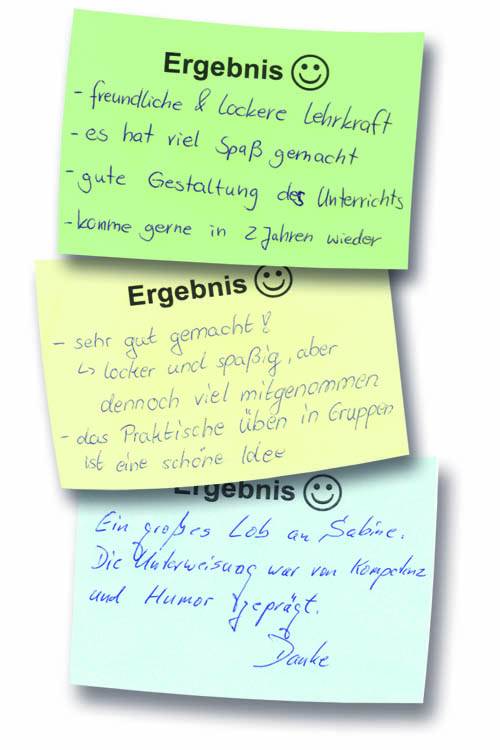 Ergebnis
- freundliche & lockere Lehrkraft
- es hat viel Spaß gemacht
- gute Gestaltung des Unterrichts
- komme gerne in 2 Jahren wieder
Ergebnis
- sehr gut gemacht!
↳ locker und spaßig, aber
dennoch viel mitgenommen
- das Praktische üben in Gruppen
ist eine schöne Idee
Ergebnis
Ein großes Lob an Sabine.
Die Unterweisung war von Kompetenz
und Humor geprägt.
Danke